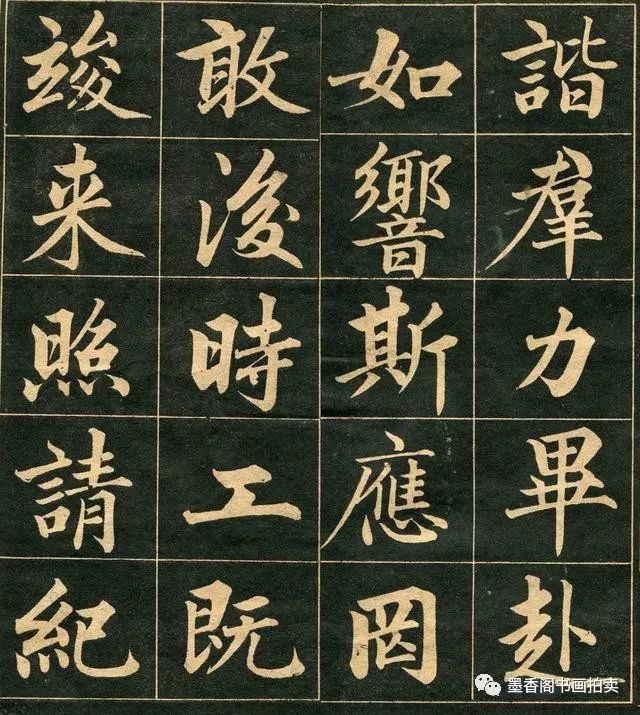 諧羣力畢赴
如響斯應罔
敢後時工既
竣来照請紀
墨香阁书画拍卖